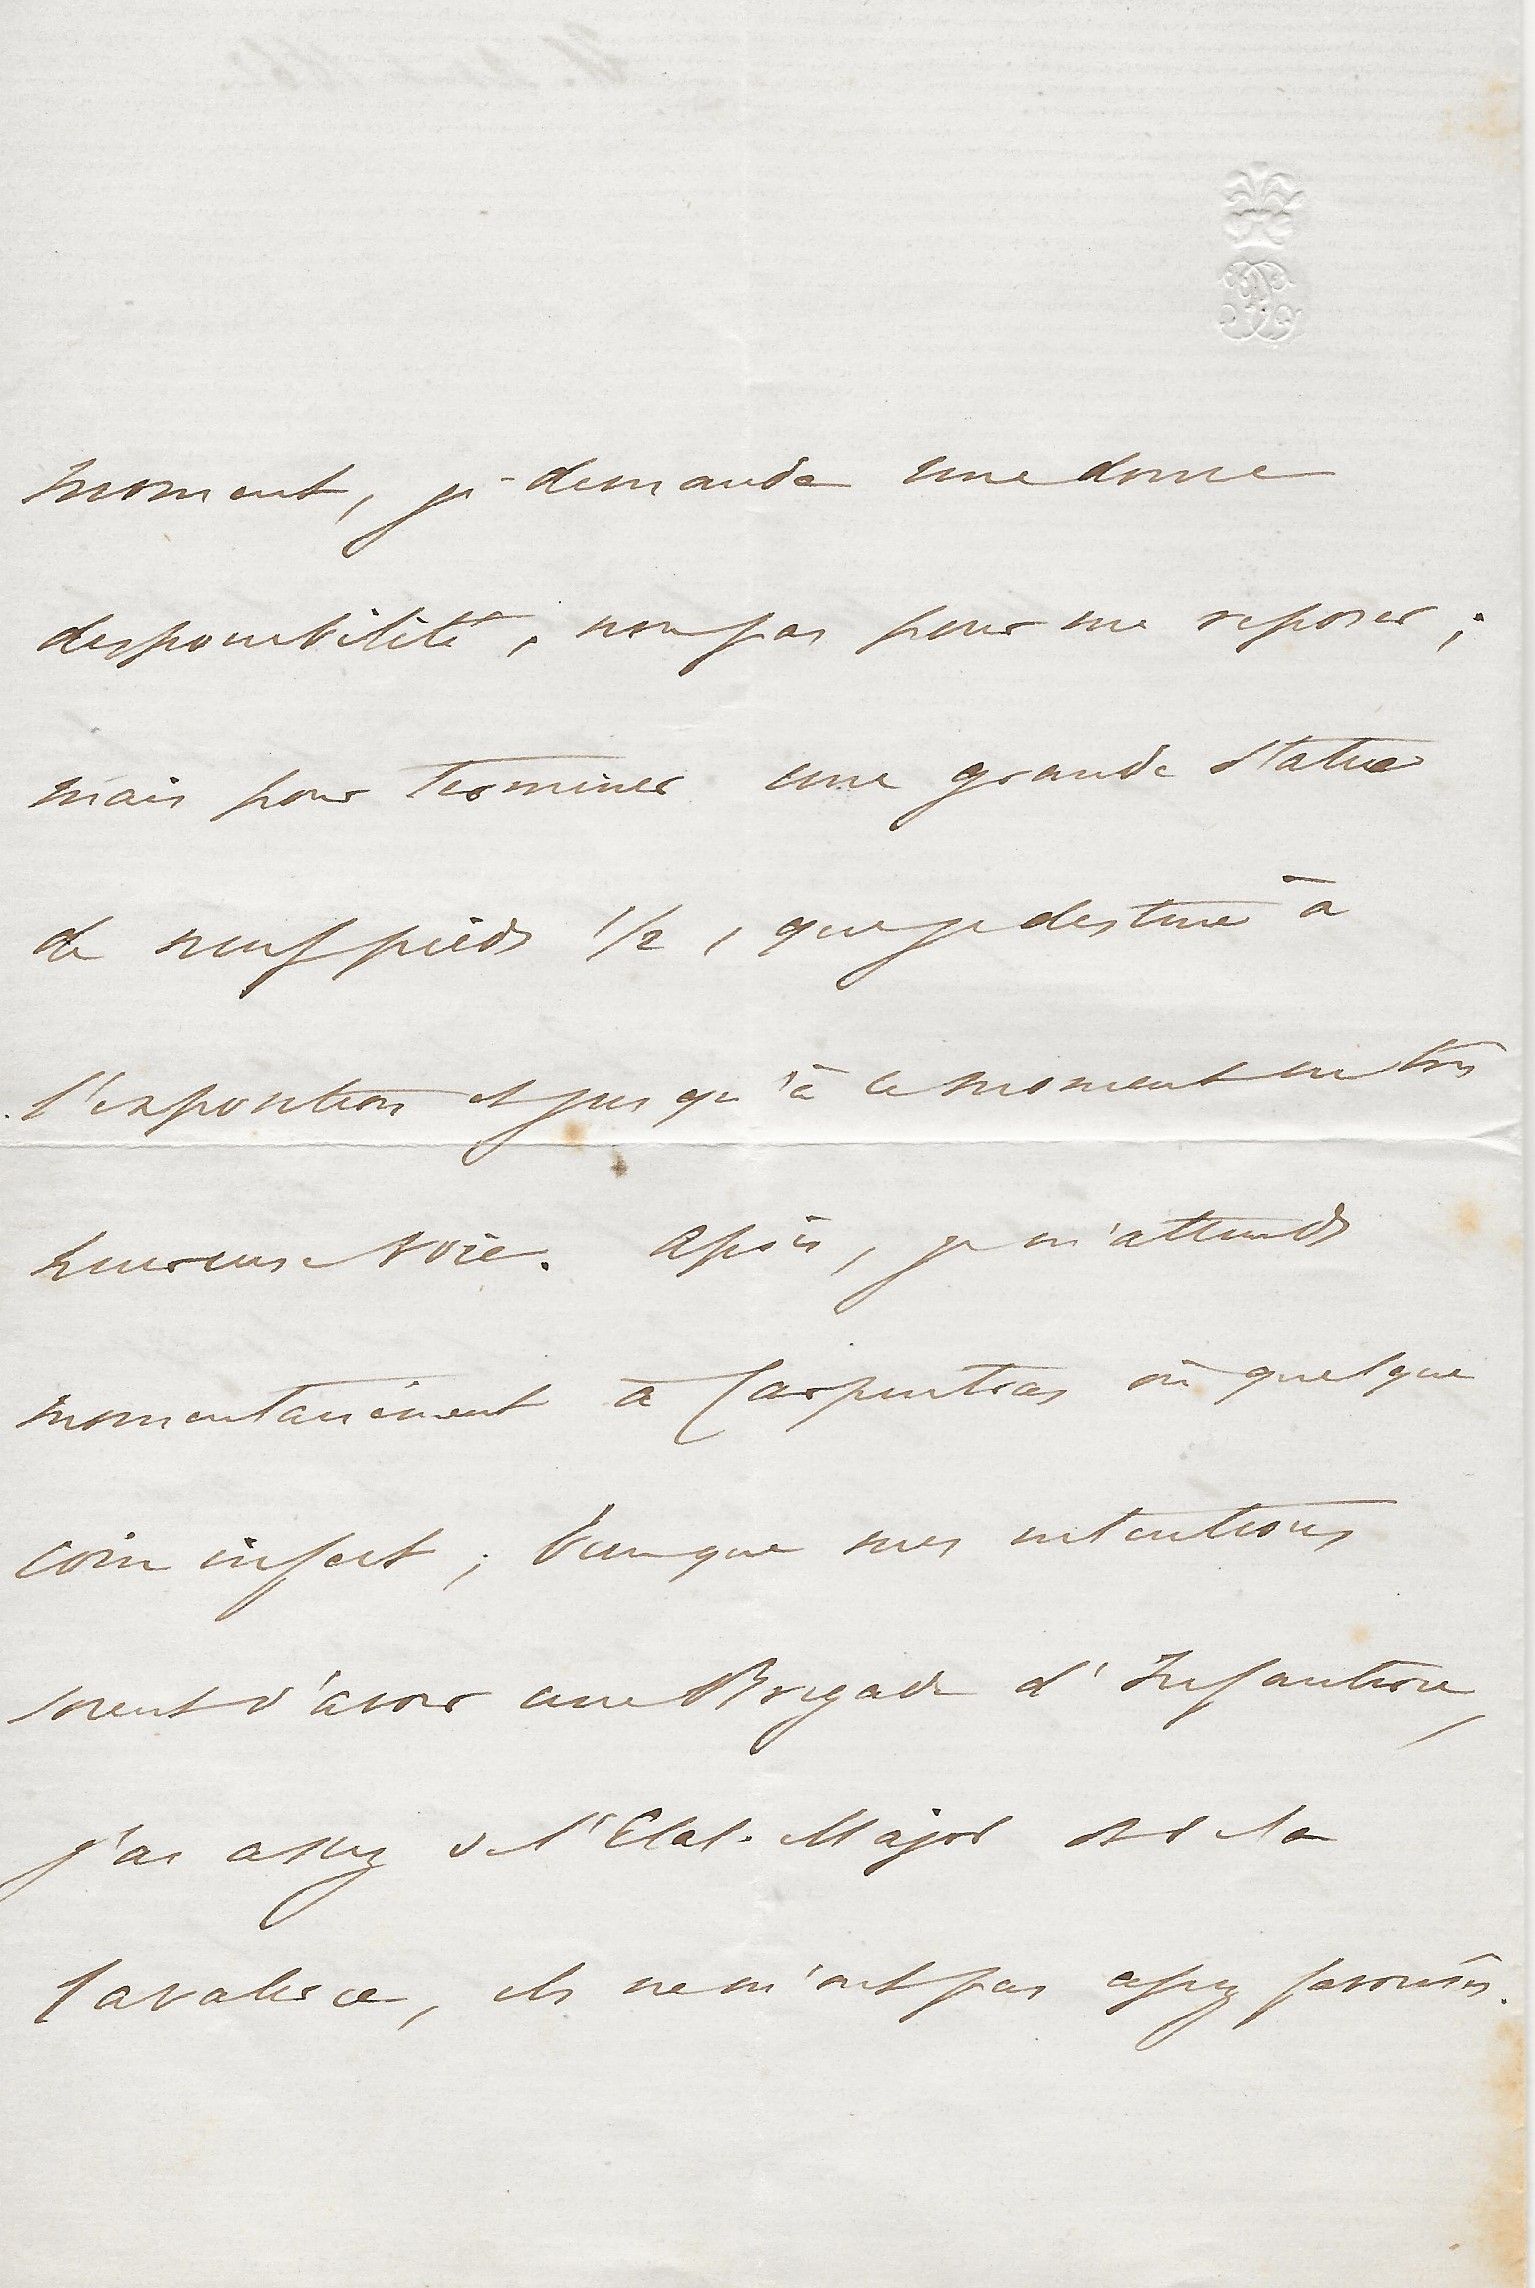 moment, je demande une douce
disponibilité, non pas pour me reposer ;
mais pour terminer une grande statue
de neuf pieds 1/2, que je destine à
l'exposition et jusqu'à ce moment en très
heureuse voie. Après, je m'attends
momentanément à Carpentras où quelque
coin infect ; bien que mes intentions
soient d'avoir une Brigade d'Infanterie,
j'ai assez de l'Etat-Major et de la
Cavalerie, ils ne m'ont pas assez favorisés.